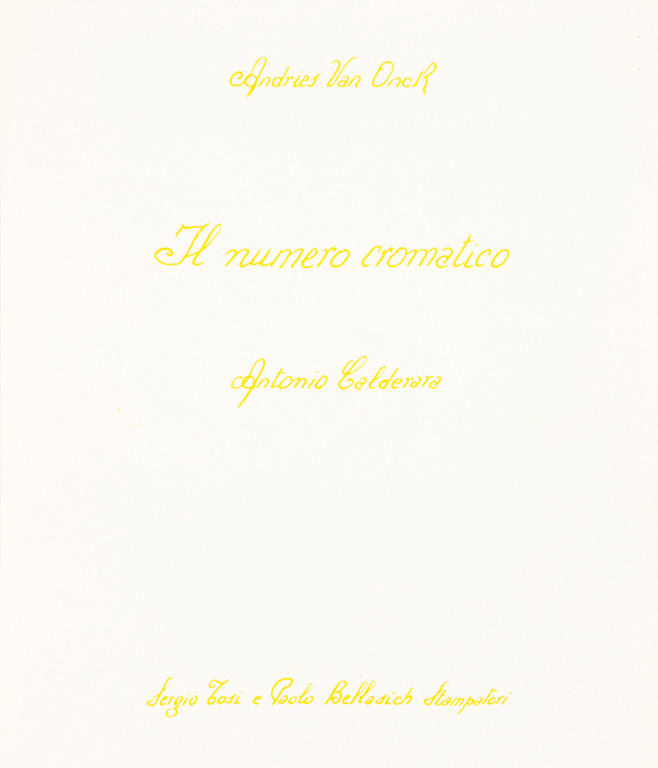 Andries Van Onck
Il numero cromatico
Antonio Calderara
Sergio Tosi e Paolo Bellasich Stampatori